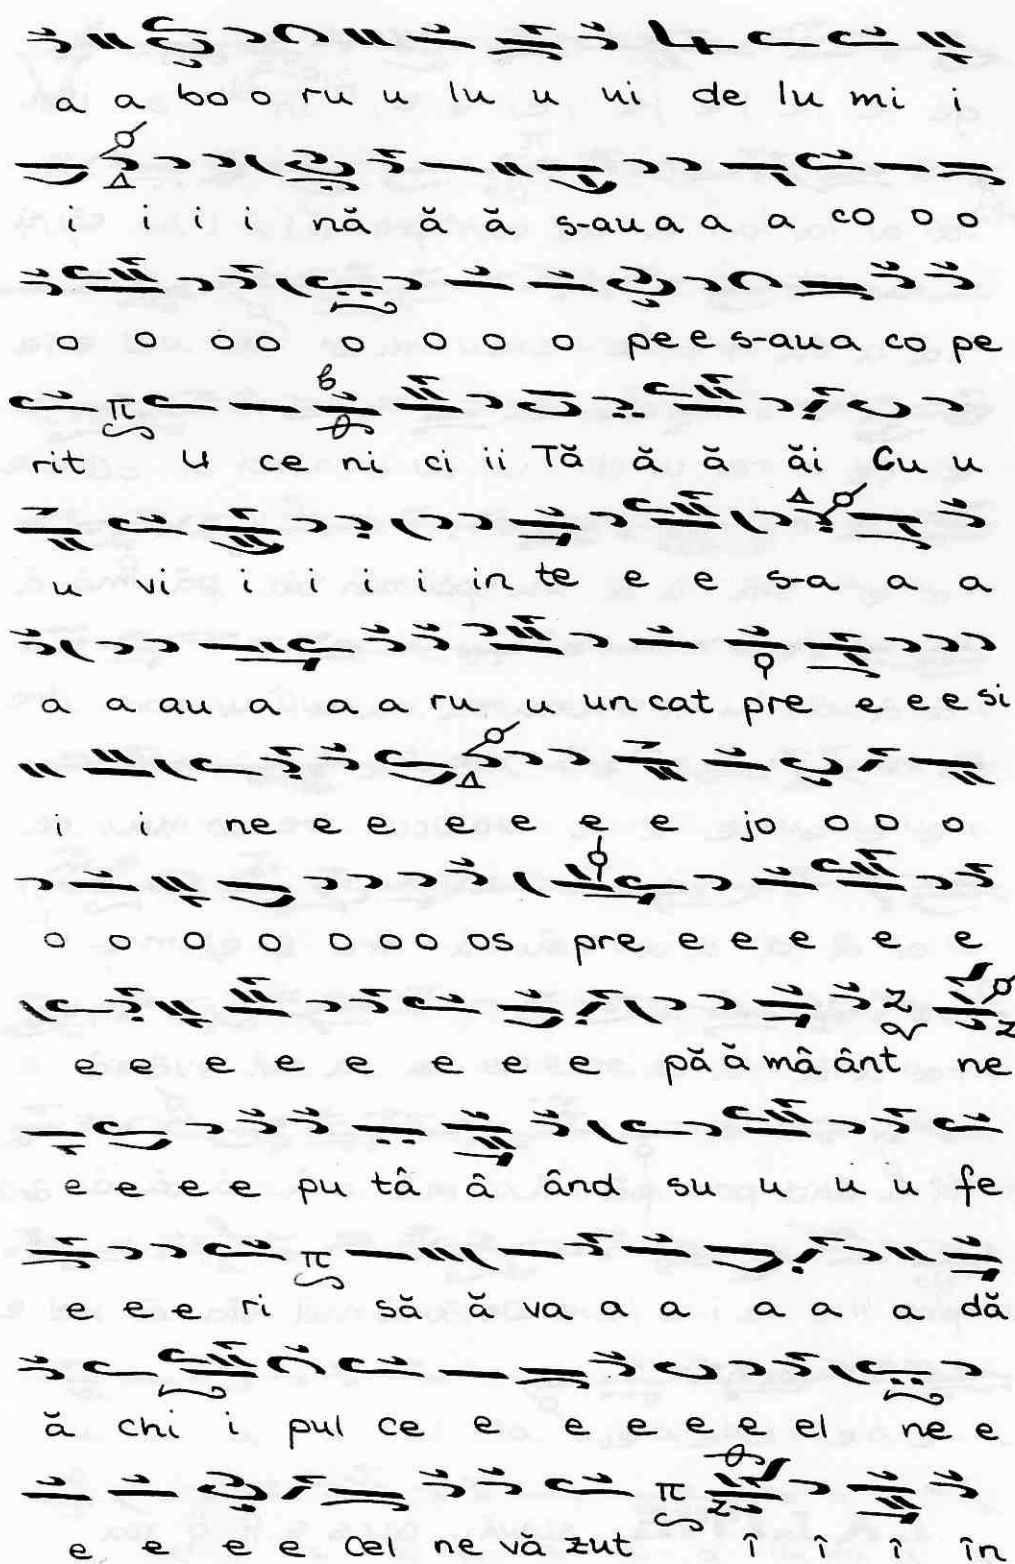 a a bo o ru u lu u ui de lu mi i
i i i i nă ă ă s-au a a a co o o
o o o o o o o o pe e s-au a co pe
rit U ce ni ci ii Tă ă ă ăi Cu u
u vi i i i i in te e e s-a a a
a a au a a a ru u un cat pre e e e e si
i i ne e e e e e e jo o o o
o o o o o o o os pre e e e e e
e e e e e e e e pă ă mâ ânt ne
e e e e pu tâ â ând su u u u fe
e e e ri să ă va a a a a a dă
ă chi i pul ce e e e e e el ne e
e e e e cel ne vă zut î î î în